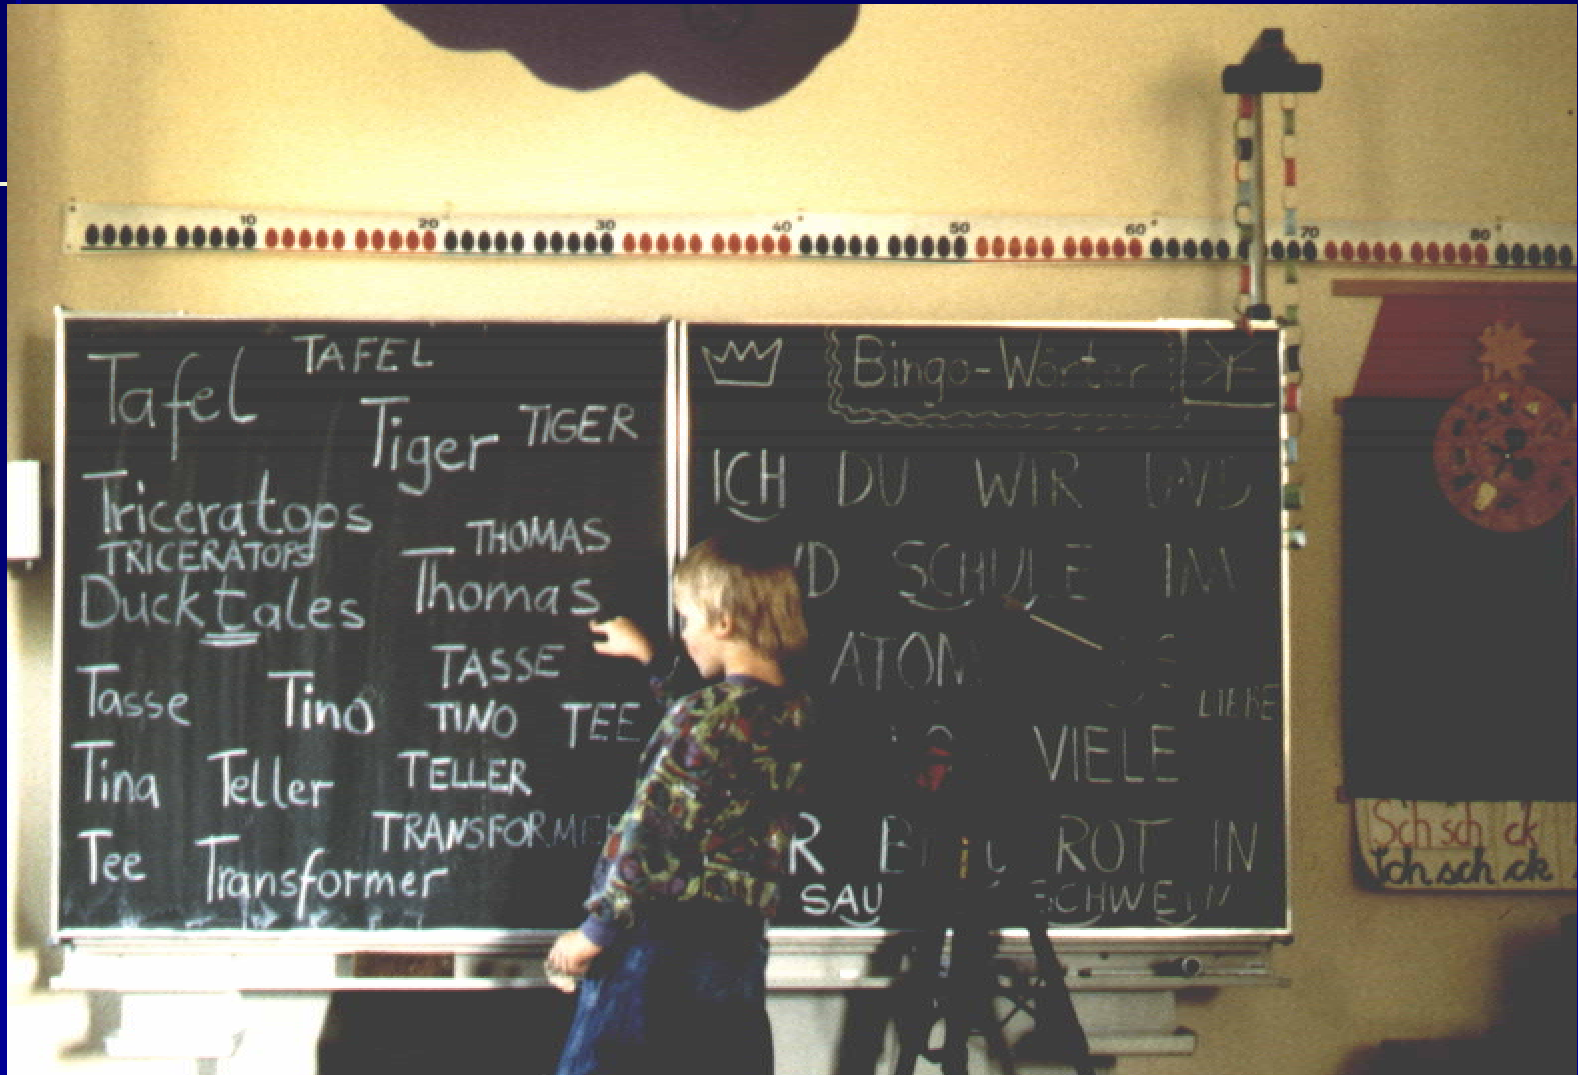 10 20 30 40 50 60 70 80
Tafel TAFEL
Tiger TIGER
Triceratops
TRICERATOPS
THOMAS
Thomas
Ducktales
TASSE
Tasse Tino
TINO TEE
Tina Teller
TELLER
TRANSFORMER
Tee Transformer
Bingo-Wörter
ICH DU WIR UND
SCHULE IM
LIEBE
VIELE
ROT IN
SAU SCHWEIN
Sch sch ck
Sch sch ck